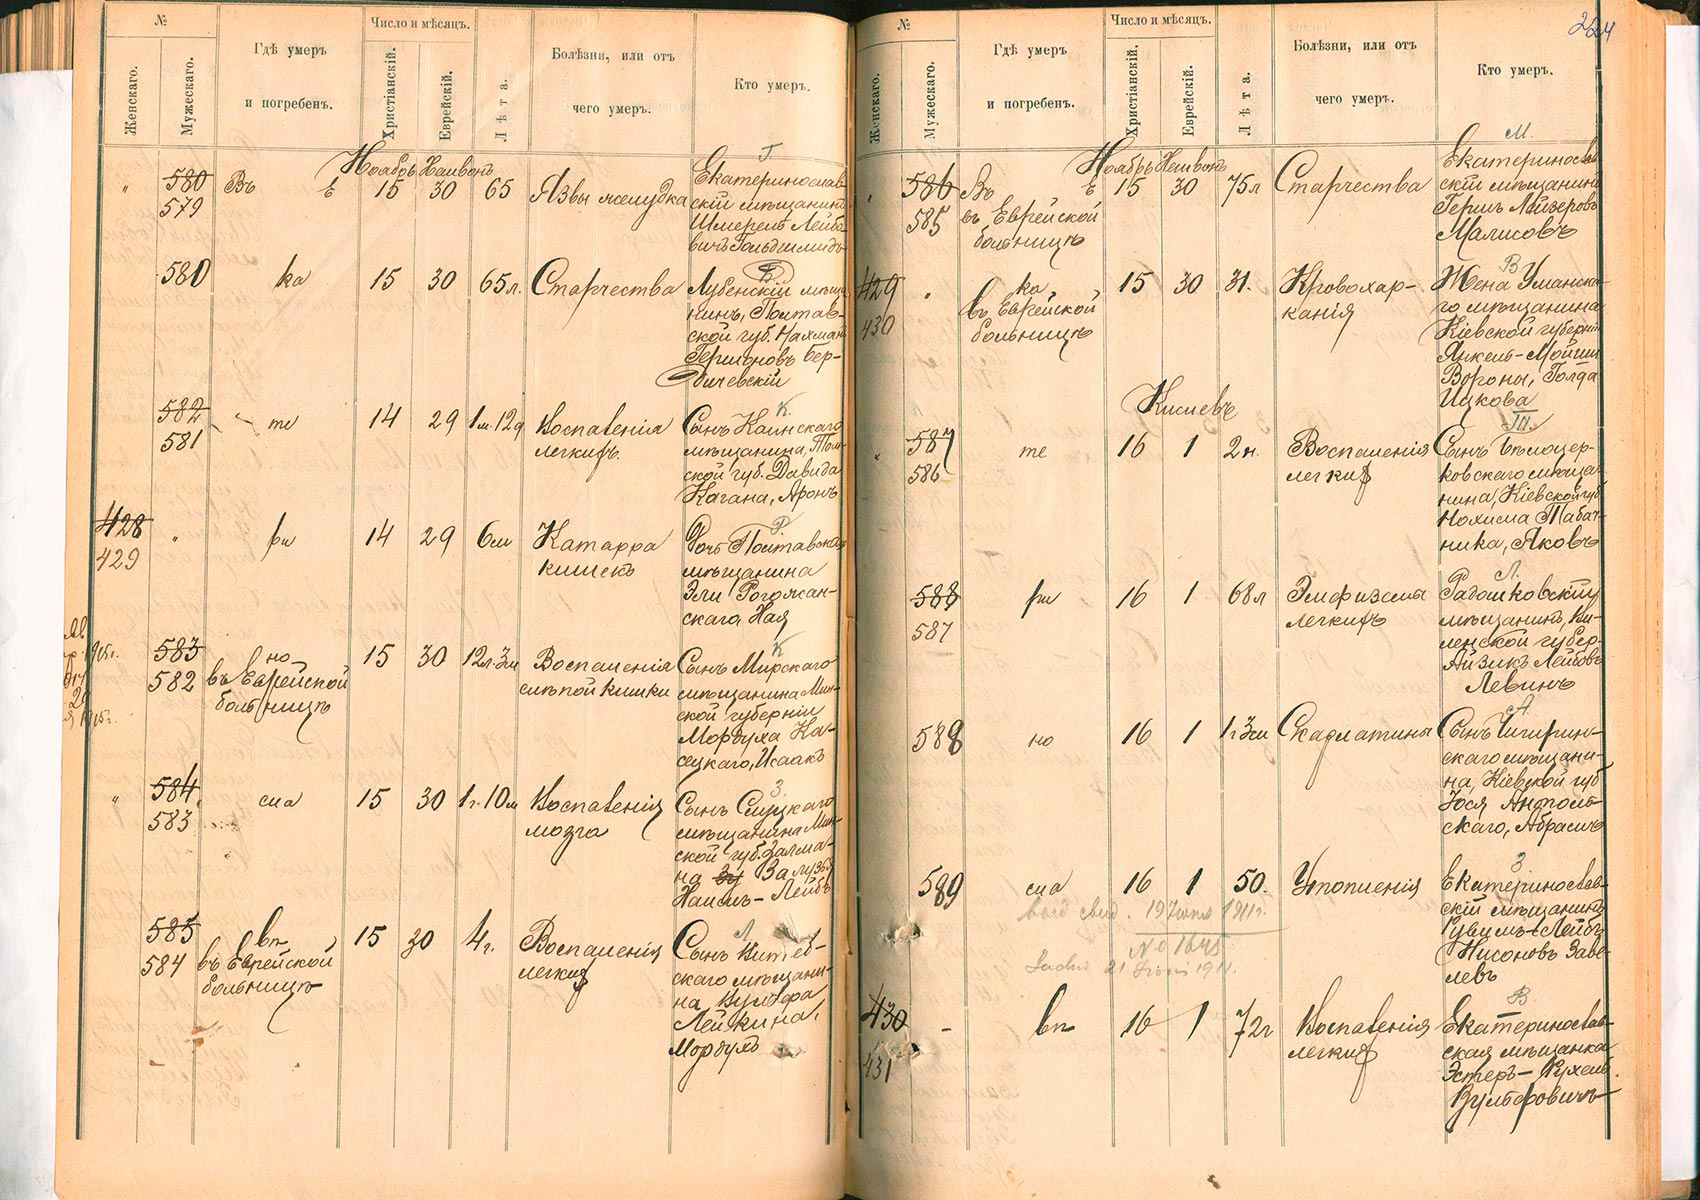 №
Число и мѣсяцъ.
Женскаго.
Мужескаго.
Гдѣ умеръ
и погребенъ.
Христіанскій.
Еврейскій.
Лѣта.
Болѣзни, или отъ
чего умеръ.
Кто умеръ.
Ноябрь Хешвонъ
Г.
580
579
Въ Е
15 30 65
Язвы желудка
Екатеринослав-
скій мѣщанинъ
Шмерель Лейбо-
вичъ Гольдшмидъ
580
ка
15 30 65 л.
Старчества
Лубенскій мѣща
нинъ, Полтав-
ской губ. Нахман
Гершоновъ Бер-
дичевскій
582
581
те
14 29 1м.12д
Воспаленія
легкихъ
К.
Сынъ Каинскаго
мѣщанина, Том-
ской губ. Давида
Кагана, Аронъ
428
429
ри
14 29 6м
Катарра
кишекъ
Р.
Дочь Полтавскаго
мѣщанина
Эли Рогожан-
скаго Хая
583
582
но
въ Еврейской
больницѣ
15 30 12л.3м
Воспаленія
слѣпой кишки
К
Сынъ Мирскаго
мѣщанина Мин-
ской губерніи
Мордуха Ка-
сецкаго, Исаакъ
584
583
сла
15 30 1г.10м
Воспаленія
мозга
З.
Сынъ Слуцкаго
мѣщанина Мин-
ской губ. Залма-
на
Хаимъ-Лейбъ
585
584
вп
въ Еврейской
больницѣ
15 30 4г.
Воспаленія
легких
Л.
Сынъ Витеб-
скаго мѣщани-
на Вульфа
Лейкина,
Мордухъ
№
Число и мѣсяцъ.
224
Женскаго.
Мужескаго.
Гдѣ умеръ
и погребенъ.
Христіанскій.
Еврейскій.
Лѣта.
Болѣзни, или отъ
чего умеръ.
Кто умеръ.
Ноябрь Хешвонъ
М.
586
585
Въ Е
въ Еврейской
больницѣ
15 30 75л
Старчества
Екатеринослав
скій мѣщанинъ
Гершъ Лейзеровъ
Малисовъ
429
430
ка
въ Еврейской
больницѣ
15 30 31.
Кровохар-
канія
В
Жена Уманска-
го мѣщанина
Кіевской губерніи
Янкель-Мойши
Вороны, Голда
Ицкова
Кислевъ
587
586
те
16 1 2н.
Воспаленія
легких
Т.
Сынъ Бѣлоцер-
ковскаго мѣща
нина, Кіевской губ
Нохима Табач-
ника, Яковъ
588
587
ри
16 1 68л
Эмфиземы
легкихъ
Л.
Радошковскій
мѣщанинъ, Ви-
ленской губер.
Айзикъ Лейбовъ
Левинъ
588
но
16 1 1г3м
Скарлатины
А.
Сынъ Чигирин-
скаго мѣщани-
на, Кіевской губ
Іося Анполь-
скаго, Абрамъ
589
сла
16 1 50.
Утопленія
З
Екатеринослав-
скій мѣщанинъ
Рувимъ-Лейбъ
Нисоновъ Заве-
левъ
1911г.
№ 1645
21 1911.
430
431
вп
16 1 72г
Воспаленія
легких
В.
Екатеринослав-
ская мѣщанка
Эстеръ-Рухель
Вульфовичъ